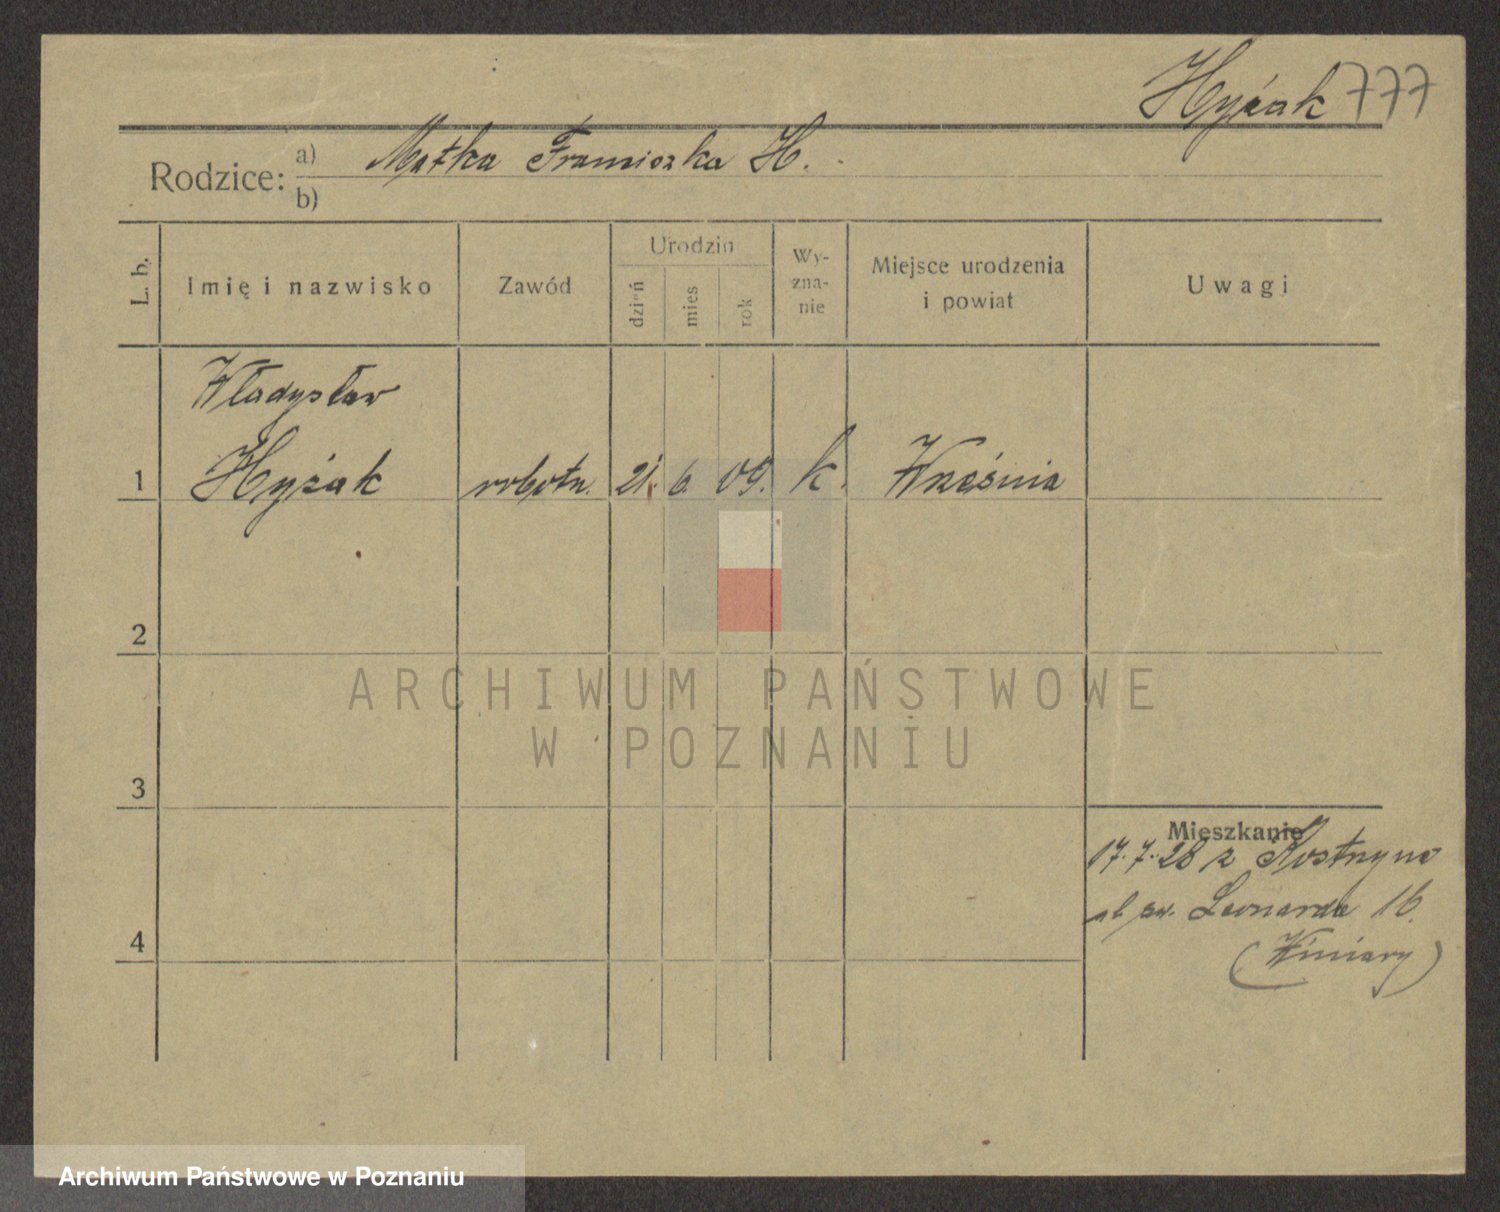 Hyżak 777
Rodzice:
a) Matka Franciszka H.
b)
L. b.
Imię i nazwisko
Zawód
Urodzin
dzień
mies
rok
Wy-
zna-
nie
Miejsce urodzenia
i powiat
Uwagi
Władysław
1 Hyżak robotn. 21. 6. 09. k. Września
2
3
4
Mieszkanie
17.7.28 z Kostrzyna
ul. św. Leonarda 16.
(Winiary)
ARCHIWUM PAŃSTWOWE
W POZNANIU
Archiwum Państwowe w Poznaniu